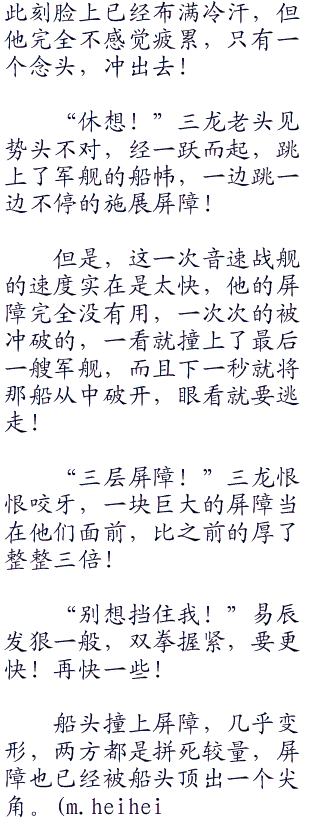 此刻脸上已经布满冷汗，但
他完全不感觉疲累，只有一
个念头，冲出去！
“休想！”三龙老头见
势头不对，经一跃而起，跳
上了军舰的船帏，一边跳一
边不停的施展屏障！
但是，这一次音速战舰
的速度实在是太快，他的屏
障完全没有用，一次次的被
冲破的，一看就撞上了最后
一艘军舰，而且下一秒就将
那船从中破开，眼看就要逃
走！
“三层屏障！”三龙恨
恨咬牙，一块巨大的屏障当
在他们面前，比之前的厚了
整整三倍！
“别想挡住我！”易辰
发狠一般，双拳握紧，要更
快！再快一些！
船头撞上屏障，几乎变
形，两方都是拼死较量，屏
障也已经被船头顶出一个尖
角。(m.heihei